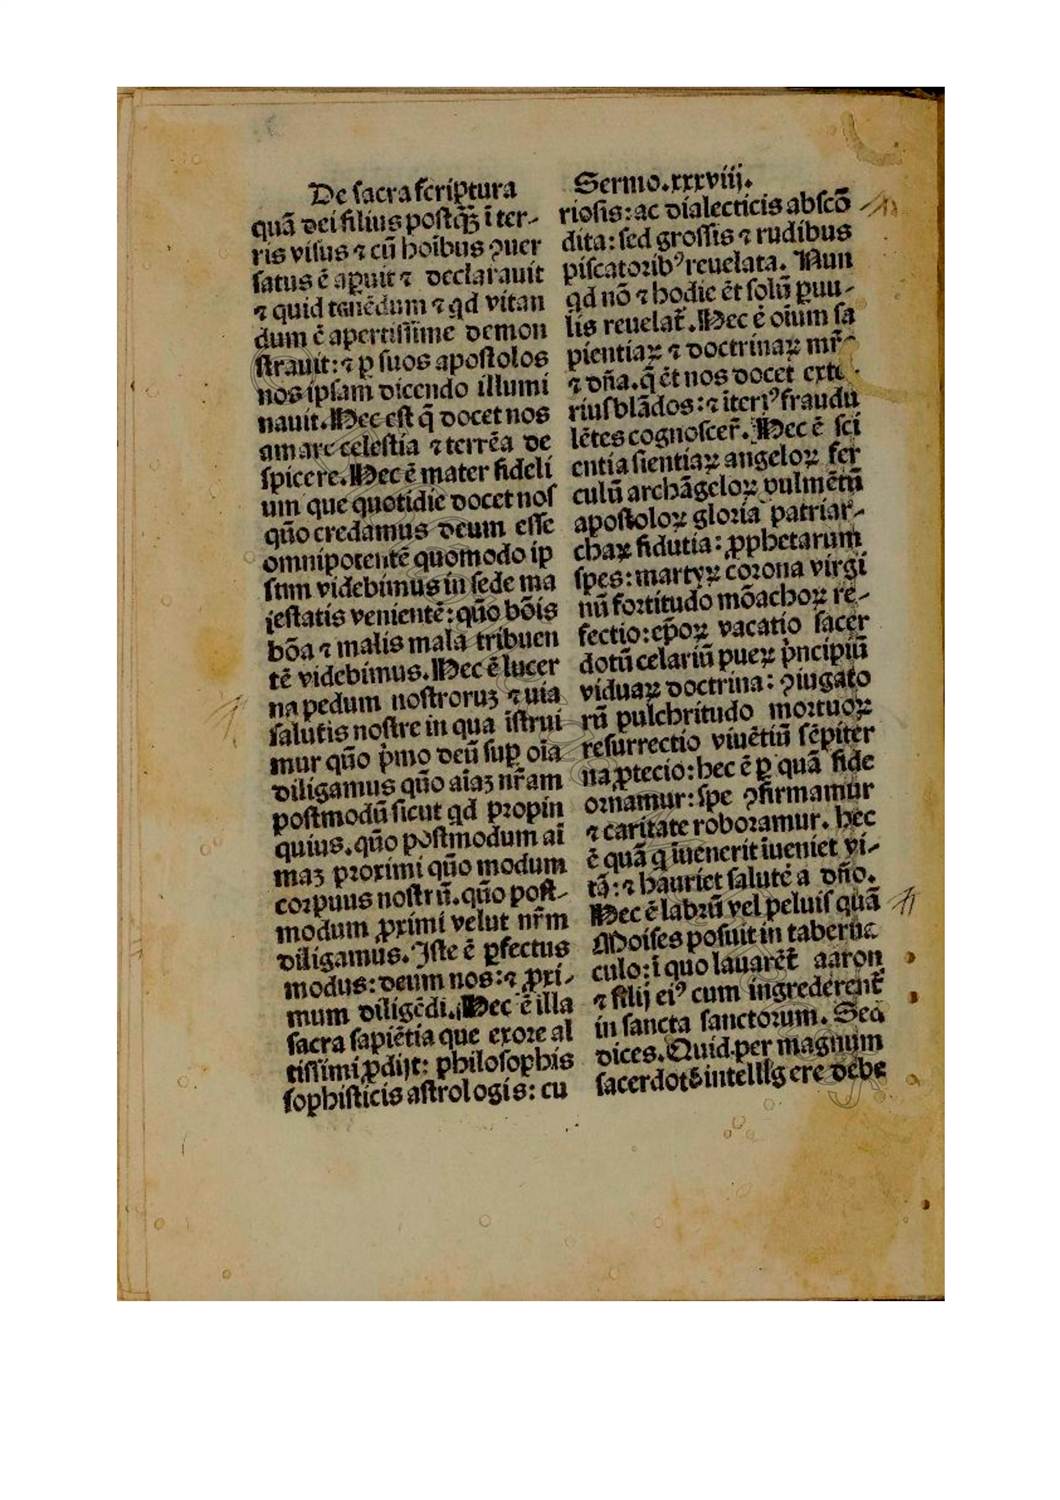 De sacra scriptura
quã dei filius postꝙ̃ ĩ ter-
ris visus ⁊ cũ hoĩbus ꝯuer
satus ẽ aꝑuit ⁊ declarauit
⁊ quid tenẽdum ⁊ qd vitan
dum ẽ apertissime demon
strauit: ⁊ ꝑ suos apostolos
nos ipsam̃ dicendo illumi
nauit. Hec est q̃ docet nos
amare celestia ⁊ terrẽa de
spicere. Hec ẽ mater fideli
um que quotidie docet nos
quõ credamus deum esse
omnipotentẽ quomodo ip
sum videbimus in sede ma
iestatis venientẽ: quõ bõis
bõa ⁊ malis mala tribuen
tẽ videbimus. Hec ẽ lucer
na pedum nostroruꝫ ⁊ uia
salutis nostre in qua ĩstrui
mur quõ p̃mo deũ suꝑ oĩa
diligamus quõ aĩaꝫ nr̃am
postmodũ sicut qd propin
quius. quõ postmodum aĩ
maꝫ proximi quõ modum
corpuus nostrũ. quõ post-
modum ꝓximi velut nr̃m
diligamus. Iste ẽ ꝑfectus
modus: deum nos: ⁊ ꝓxi-
mum diligẽdi. Hec ẽ illa
sacra sapiẽtia que exore al
tissimi ꝓdijt: philosophis
sophisticis astrologis: cu
Sermo. xxxviij.
riosis: ac dialecticis abscõ
dita: sed grossis ⁊ rudibus
piscatoribꝰ reuelata. Nun
qd nõ ⁊ hodie ẽt solũ ꝑuu-
lis reuelat̃. Hec ẽ oĩum sa
pientiaꝝ ⁊ doctrinaꝝ mr̃
⁊ dña. q̃ ẽt nos docet exte
rius blãdos: ⁊ ĩteriꝰ fraudu
lẽtes cognoscer̃. Hec ẽ sci
entia sientiaꝝ angeloꝝ fer
culũ archãgeloꝝ pulmẽtũ
apostoloꝝ gloria patriar-
chaꝝ fidutia: ꝓphetarum
spes: martyꝝ corona virgi
nũ fortitudo mõachoꝝ re-
fectio: ep̃oꝝ vacatio sacer
dotũ celariũ pueꝝ p̃ncipiũ
viduaꝝ doctrina: ꝯiugato
rũ pulchritudo mortuoꝝ
resurrectio viuẽtiũ sẽpiter
na ꝓtecio: hec ẽ ꝑ quã fide
ornamur: spe ꝯfirmamur
⁊ caritate roboramur. hec
ẽ quã q iuenerit ĩueniet vi-
tã: ⁊ hauriet salutẽ a dño.
Hec ẽ labrũ vel peluis quã
Moises posuit in taberna
culo: ĩ quo lauarẽt̃ aaron
⁊ filij eiꝰ cum ingrederent̃
in sancta sanctorum. Sed
dices. Quid per magnum
sacerdotẽ intelligere debe